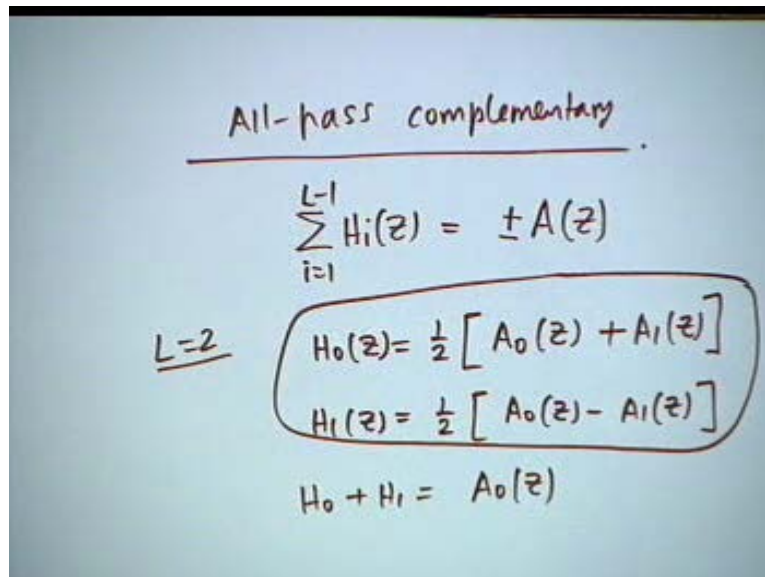 All-pass complementary.
L-1
∑ Hi(z) = ± A(z)
i=1
L=2 H0(z) = 1/2 [ A0(z) + A1(z) ]
H1(z) = 1/2 [ A0(z) - A1(z) ]
H0 + H1 = A0(z)